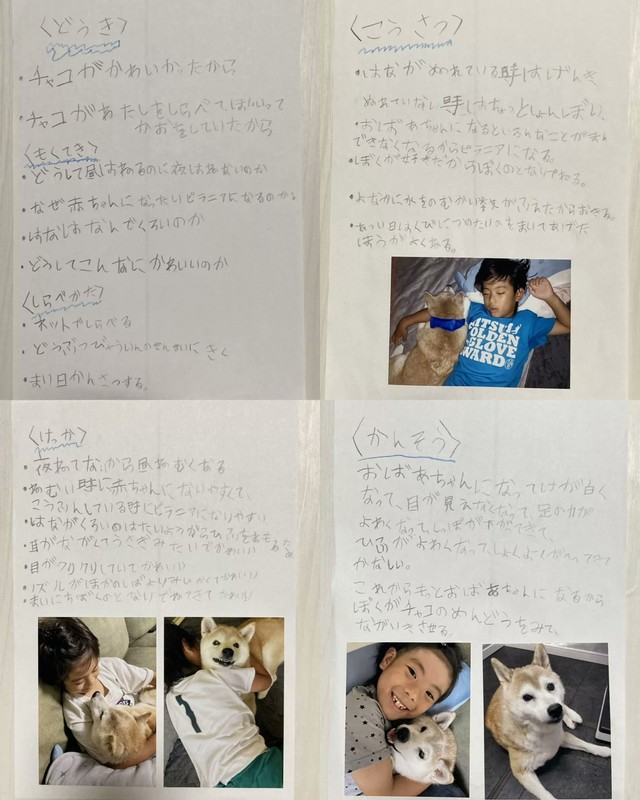 〈どうき〉
・チャコがかわいかったから
・チャコがあたしをしらべてほしいって
かおをしていたから
〈もくてき〉
・どうして昼はねるのに夜はねないのか
・なぜ赤ちゃんになったりピラニアになるのか
・はなはなんでくろいのか
・どうしてこんなにかわいいのか
〈しらべかた〉
・ネットでしらべる
・どうぶつびょういんのせんせいにきく
・まい日かんさつする。
〈こうさつ〉
・はながぬれている時はげんき
ぬれていない時はちょっとしょんぼり、
・おばあちゃんになるといろんなことが
できなくなるからピラニアになる。
・ぼくが好きだからぼくのとなりでねる。
・よなかに水をのむかい数がふえたからおきる。
・あつい日はくびにつめたいのをまいてあげた
ほうがよくねる。
ATSU
GOLDEN
GLOVE
WARD
〈けっか〉
・夜ねてないから昼ねむくなる
・ねむい時に赤ちゃんになりやすくて、
こうふんしている時にピラニアになりやすい
・はながくろいのはたいようからひふをまもるため
・耳がながくてうさぎみたいでかわいい
・目がクリクリしていてかわいい
・ノズルがほかのしばよりみじかくてかわいい
・まいにちぼくのとなりでねてきてかわいい
1
〈かんそう〉
おばあちゃんになってけが白く
なって、目が見えなくなって、足の力が
よわくなって、しっぽが下がってきて、
ひふがよわくなって、しょくよくがへってきて
かなしい。
これからもっとおばあちゃんになるから
ぼくがチャコのめんどうをみて、
ながいきさせる。